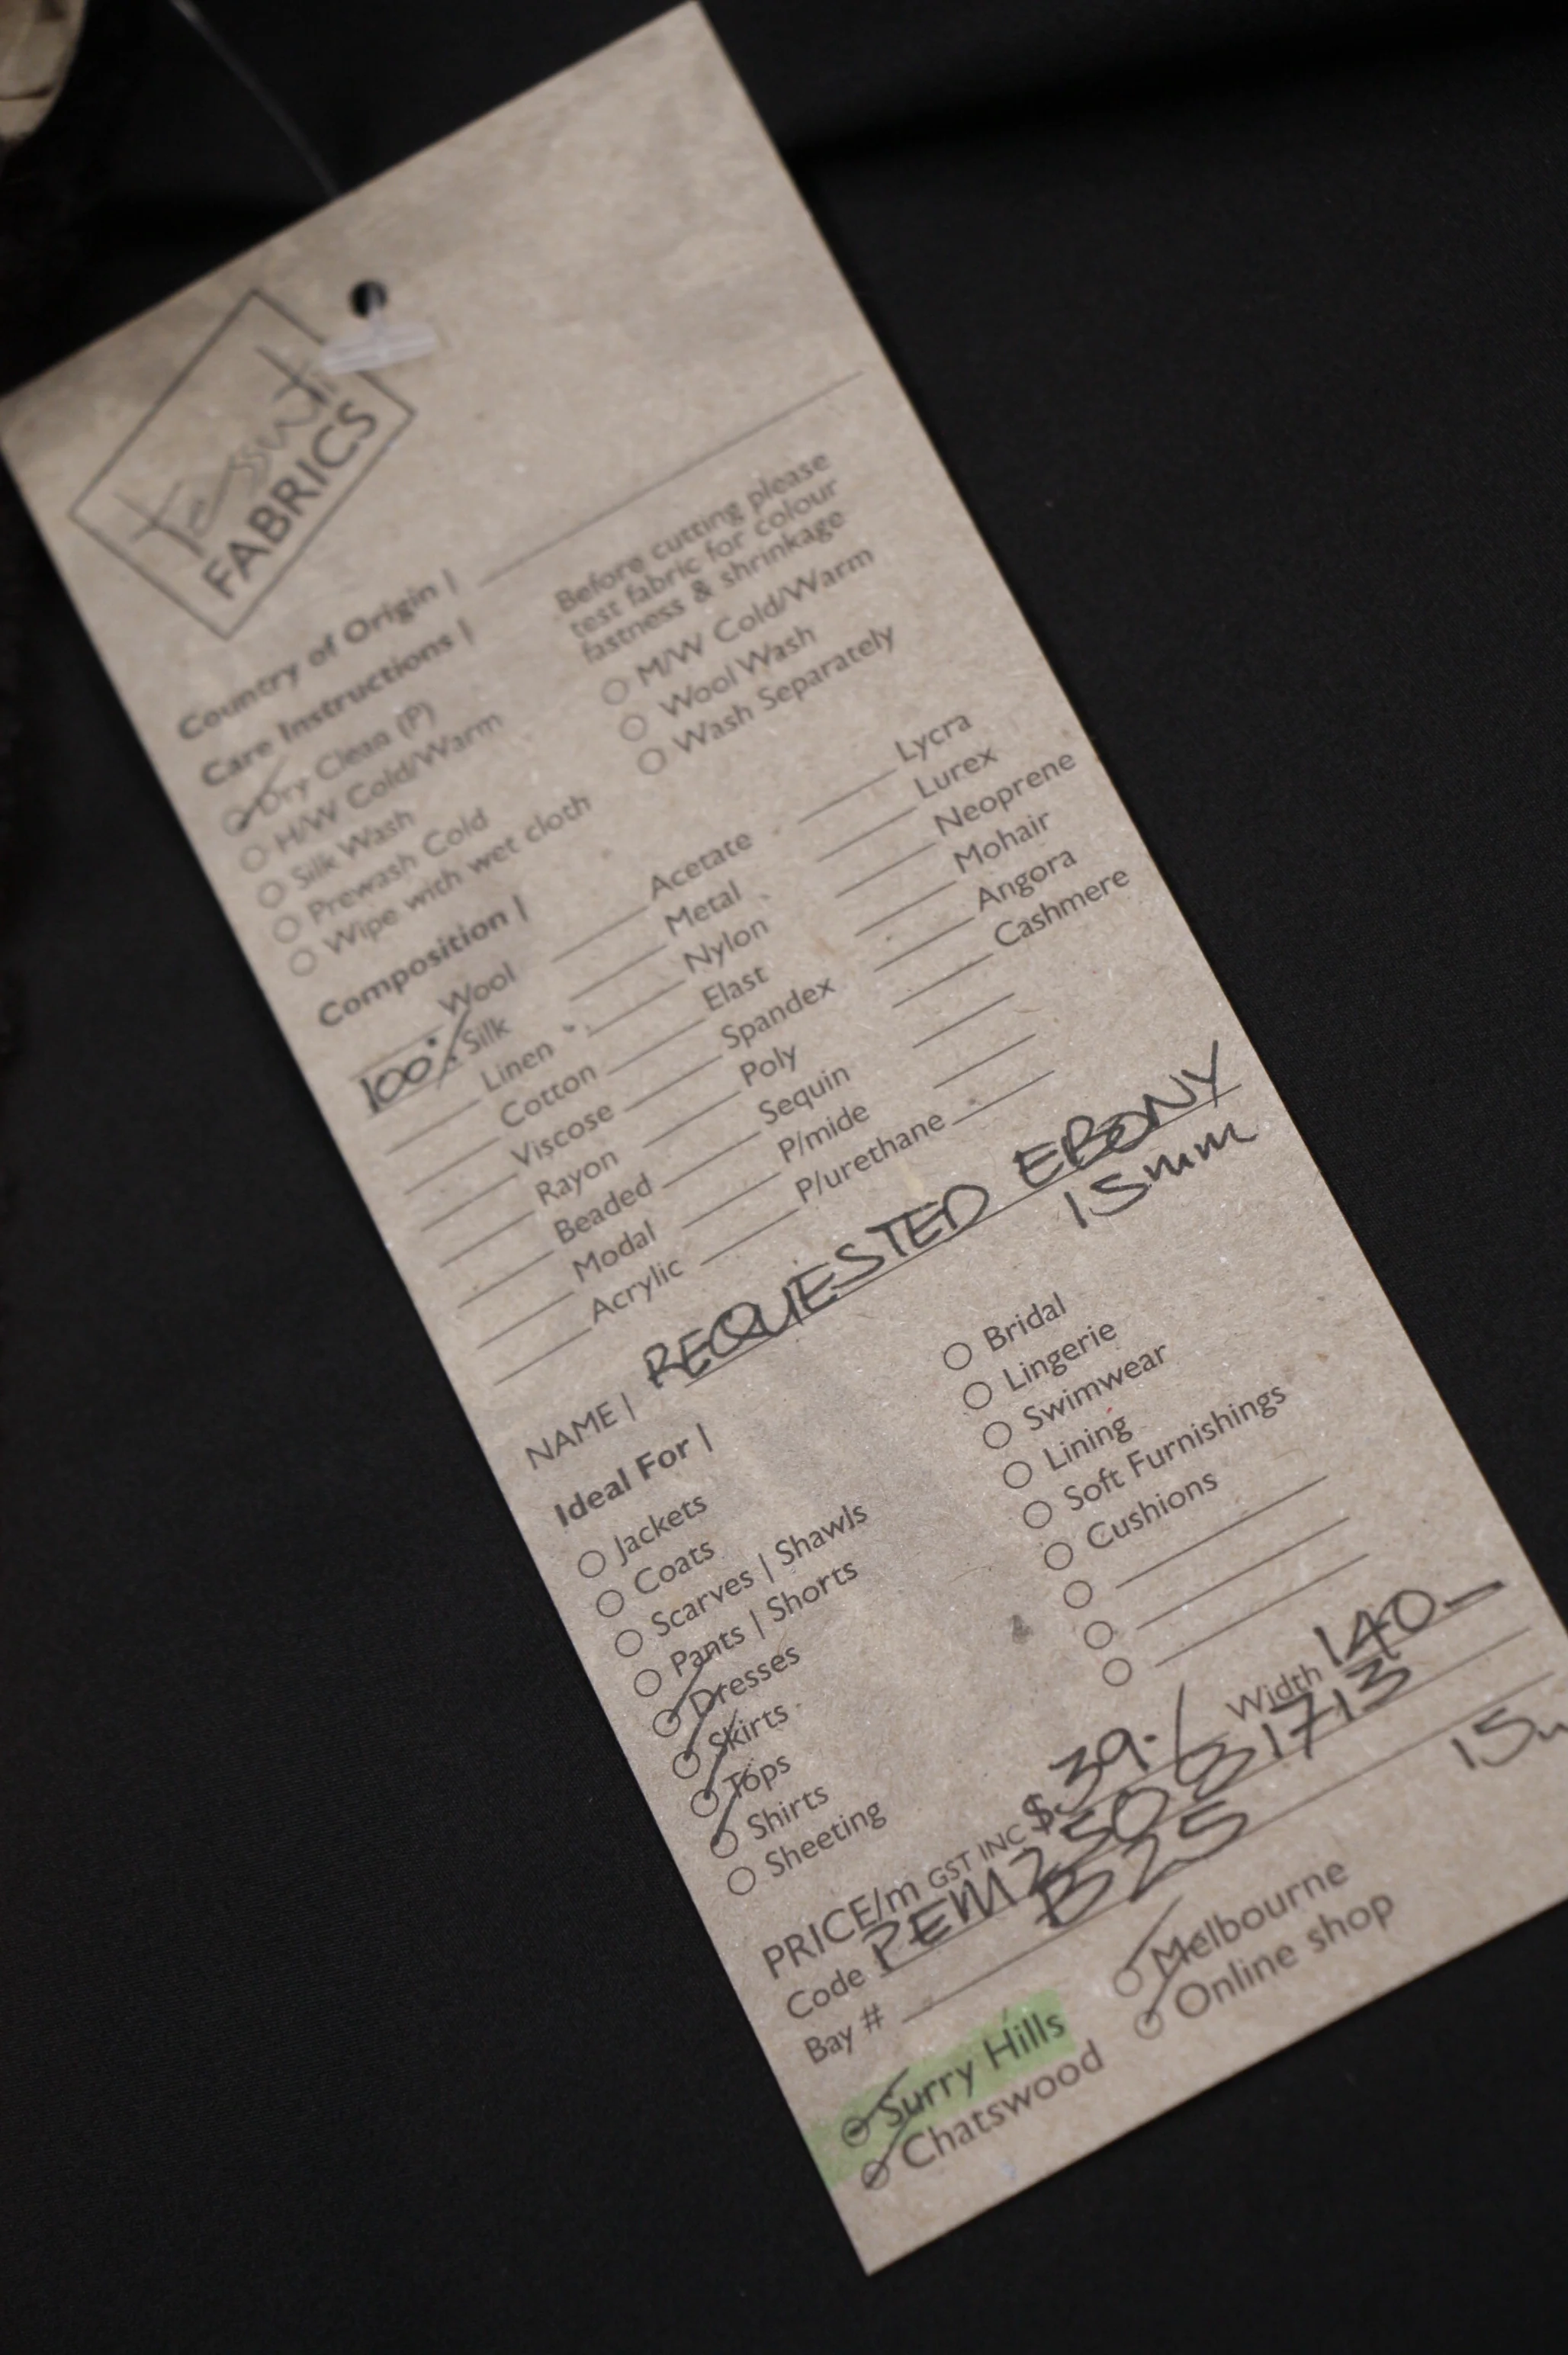 tessuti
FABRICS
Country of Origin |
Care Instructions |
Before cutting please
test fabric for colour
fastness & shrinkage
Dry Clean (P)
H/W Cold/Warm
Silk Wash
Prewash Cold
Wipe with wet cloth
M/W Cold/Warm
Wool Wash
Wash Separately
Composition |
Wool
100% Silk
Linen
Cotton
Viscose
Rayon
Beaded
Modal
Acrylic
Acetate
Metal
Nylon
Elast
Spandex
Poly
Sequin
P/mide
P/urethane
Lycra
Lurex
Neoprene
Mohair
Angora
Cashmere
NAME | REQUESTED EBONY
15mm
Ideal For |
Jackets
Coats
Scarves | Shawls
Pants | Shorts
Dresses
Skirts
Tops
Shirts
Sheeting
Bridal
Lingerie
Swimwear
Lining
Soft Furnishings
Cushions
PRICE/m GST INC $39.- Width 140-
Code PEM25081713
Bay # B25
Surry Hills
Chatswood
Melbourne
Online shop